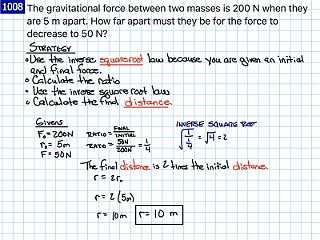 1008 The gravitational force between two masses is 200 N when they
are 5 m apart. How far apart must they be for the force to
decrease to 50 N?
STRATEGY
• Use the inverse square root law because you are given an initial
and final force.
• Calculate the ratio
• Use the inverse square root law
• Calculate the final distance.
Givens
F₀ = 200N
r₀ = 5m
F = 50N
RATIO = FINAL / INITIAL
RATIO = 50N / 200N = 1/4
INVERSE SQUARE ROOT
√(1 / (1/4)) = √4 = 2
The final distance is 2 times the initial distance.
r = 2r₀
r = 2(5m)
r = 10m
r = 10 m